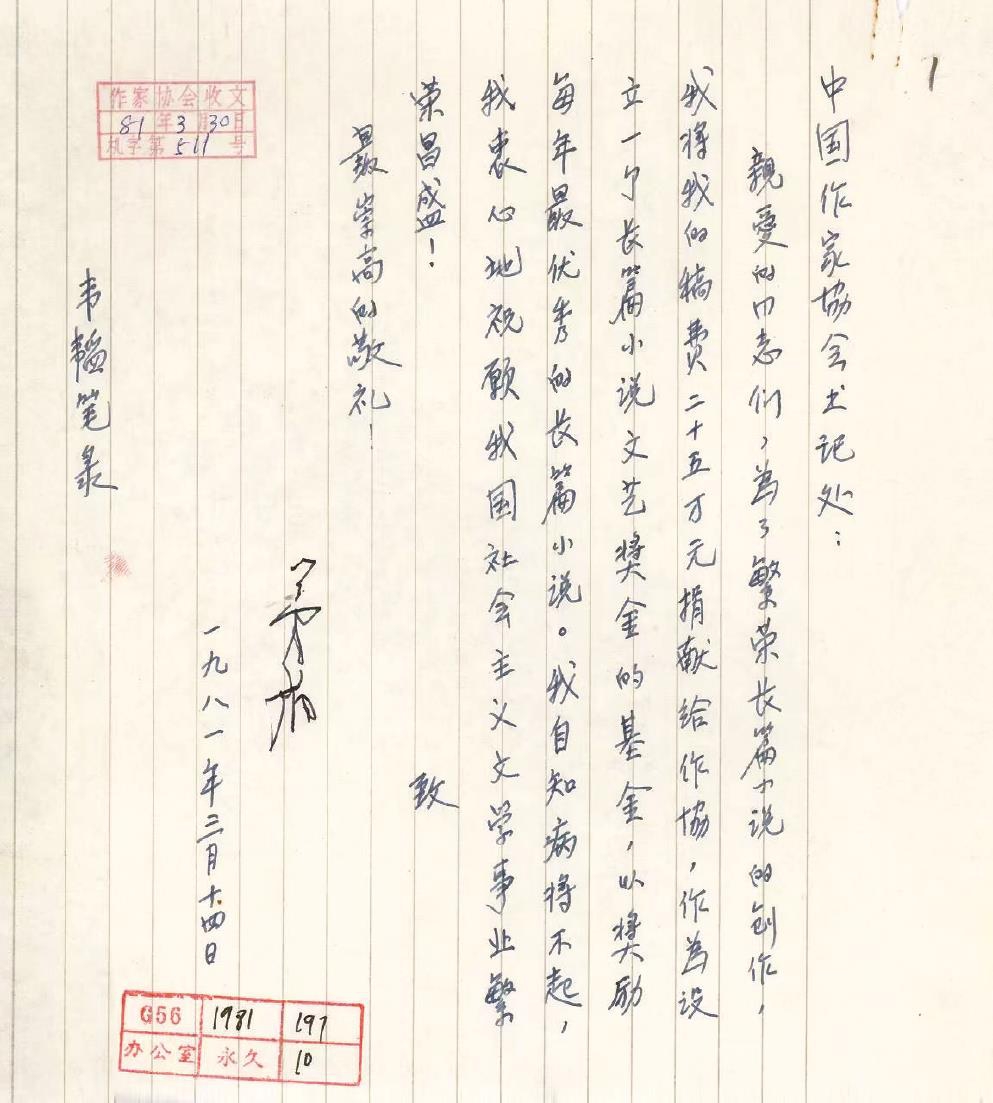 1
中国作家协会书记处：
親爱的同志们，為了繁荣长篇小说的创作，
我将我的稿费二十五万元捐献给作协，作為设
立一个长篇小说文艺奬金的基金，以奬励
每年最优秀的长篇小说。我自知病将不起，
我衷心地祝愿我国社会主义文学事业繁
荣昌盛！
致
最崇高的敬礼！
茅盾
一九八一年三月十四日
韦韬笔录
作家协会收文
81年3月30日
机字第511号
G56 1981 197
办公室 永久 10